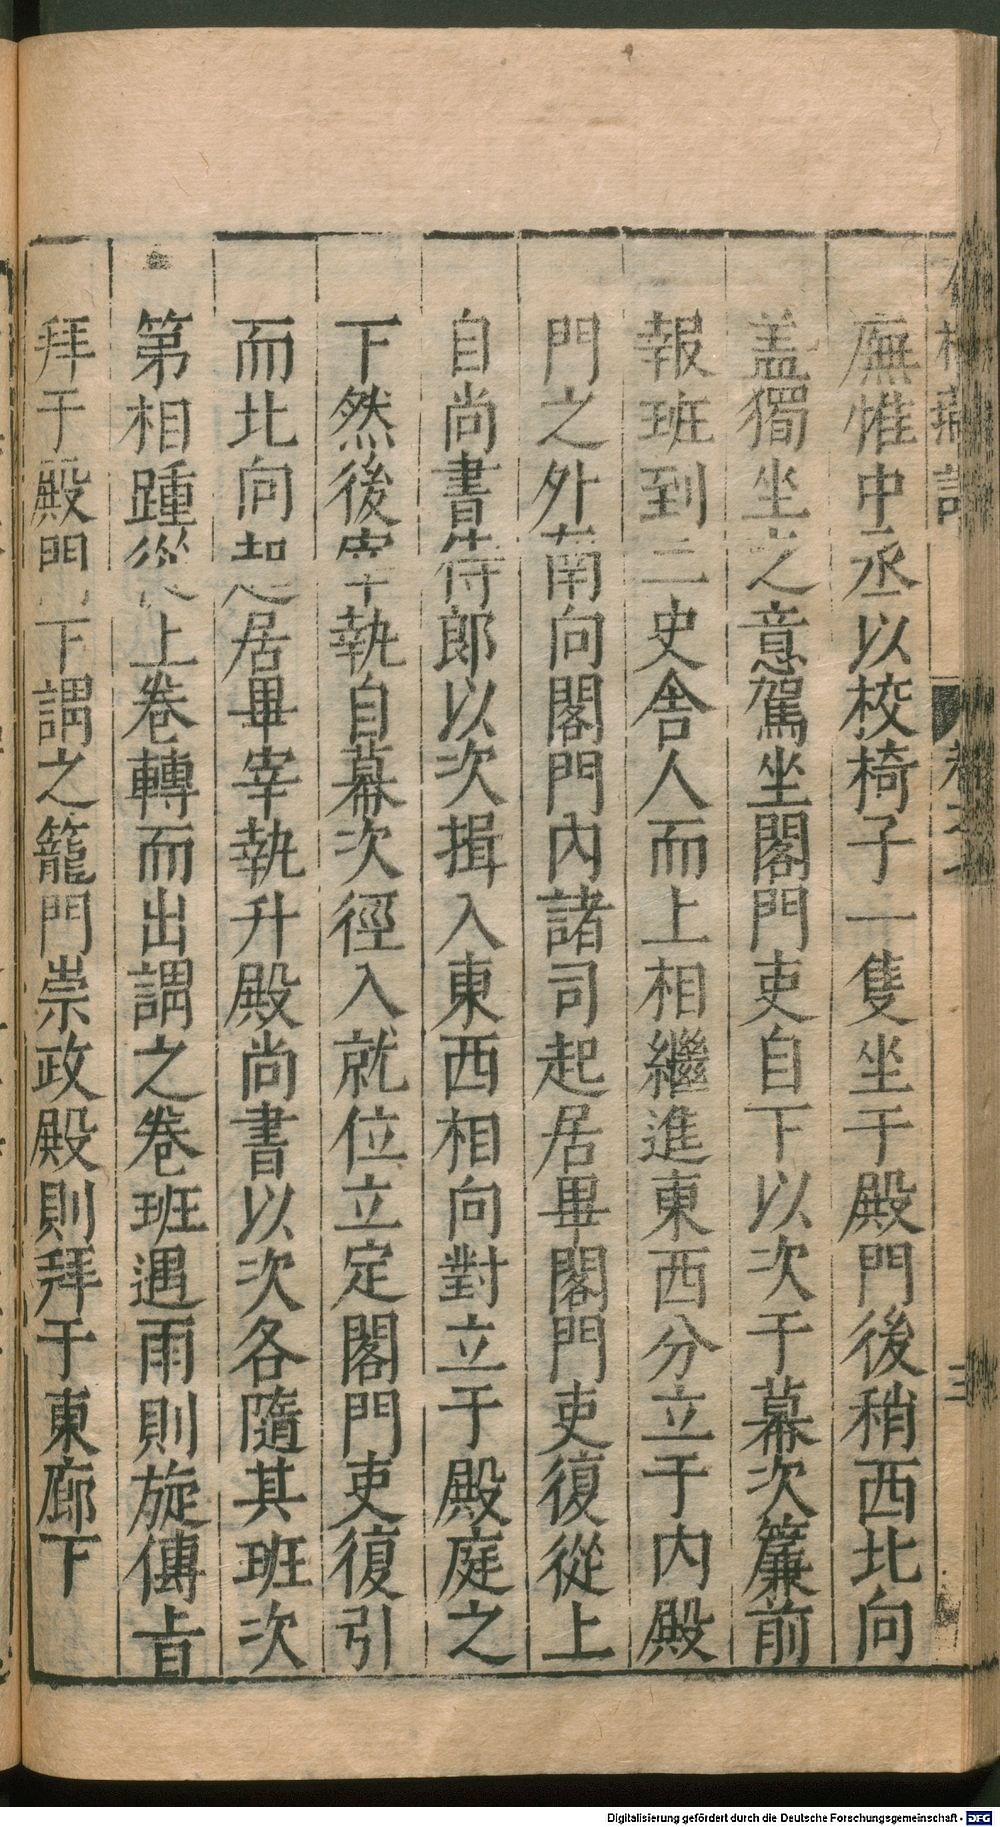 廡惟中丞以校椅子一隻坐于殿門後稍西北向
盖獨坐之意駕坐閣門吏自下以次于幕次簾前
報班到二史舍人而上相繼進東西分立于内殿
門之外南向閣門內諸司起居畢閣門吏復從上
自尚書侍郎以次揖入東西相向對立于殿庭之
下然後宰執自幕次徑入就位立定閣門吏復引
而北向起居畢宰執升殿尚書以次各隨其班次
第相踵從上卷轉而出謂之卷班遇雨則旋傳旨
拜于殿門下謂之籠門崇政殿則拜于東廊下
三
Digitalisierung gefördert durch die Deutsche Forschungsgemeinschaft - DFG